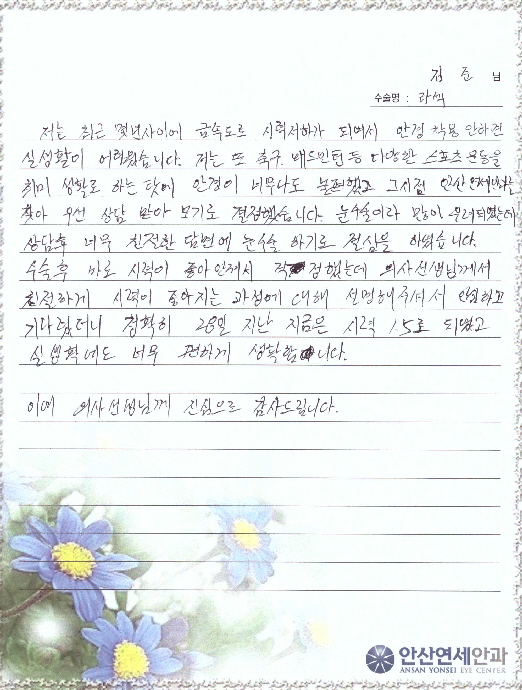 김 준 님
수술명 : 라섹
저는 최근 몇년사이에 급속도로 시력저하가 되어서 안경 착용 안하면
실생활이 어려웠습니다. 저는 또 축구, 배드민턴 등 다양한 스포츠 운동을
취미 생활로 하는 탓에 안경이 너무나도 불편했고 그시점 안산연세안과를
찾아 우선 상담 받아 보기로 결정했습니다 눈수술이라 많이 우려되었는데
상담후 너무 친절한 답변에 눈수술 하기로 결심을 하였습니다.
수술후 바로 시력이 좋아안져서 걱정했는데 의사선생님께서
친절하게 시력이 좋아지는 과정에 대해 설명해주셔서 안심하고
기다렸더니 정확히 28일 지난 지금은 시력 1.5로 되었고
실생활에도 너무 편하게 생활합니다.
이에 의사선생님께 진심으로 감사드립니다.
안산연세안과
ANSAN YONSEI EYE CENTER